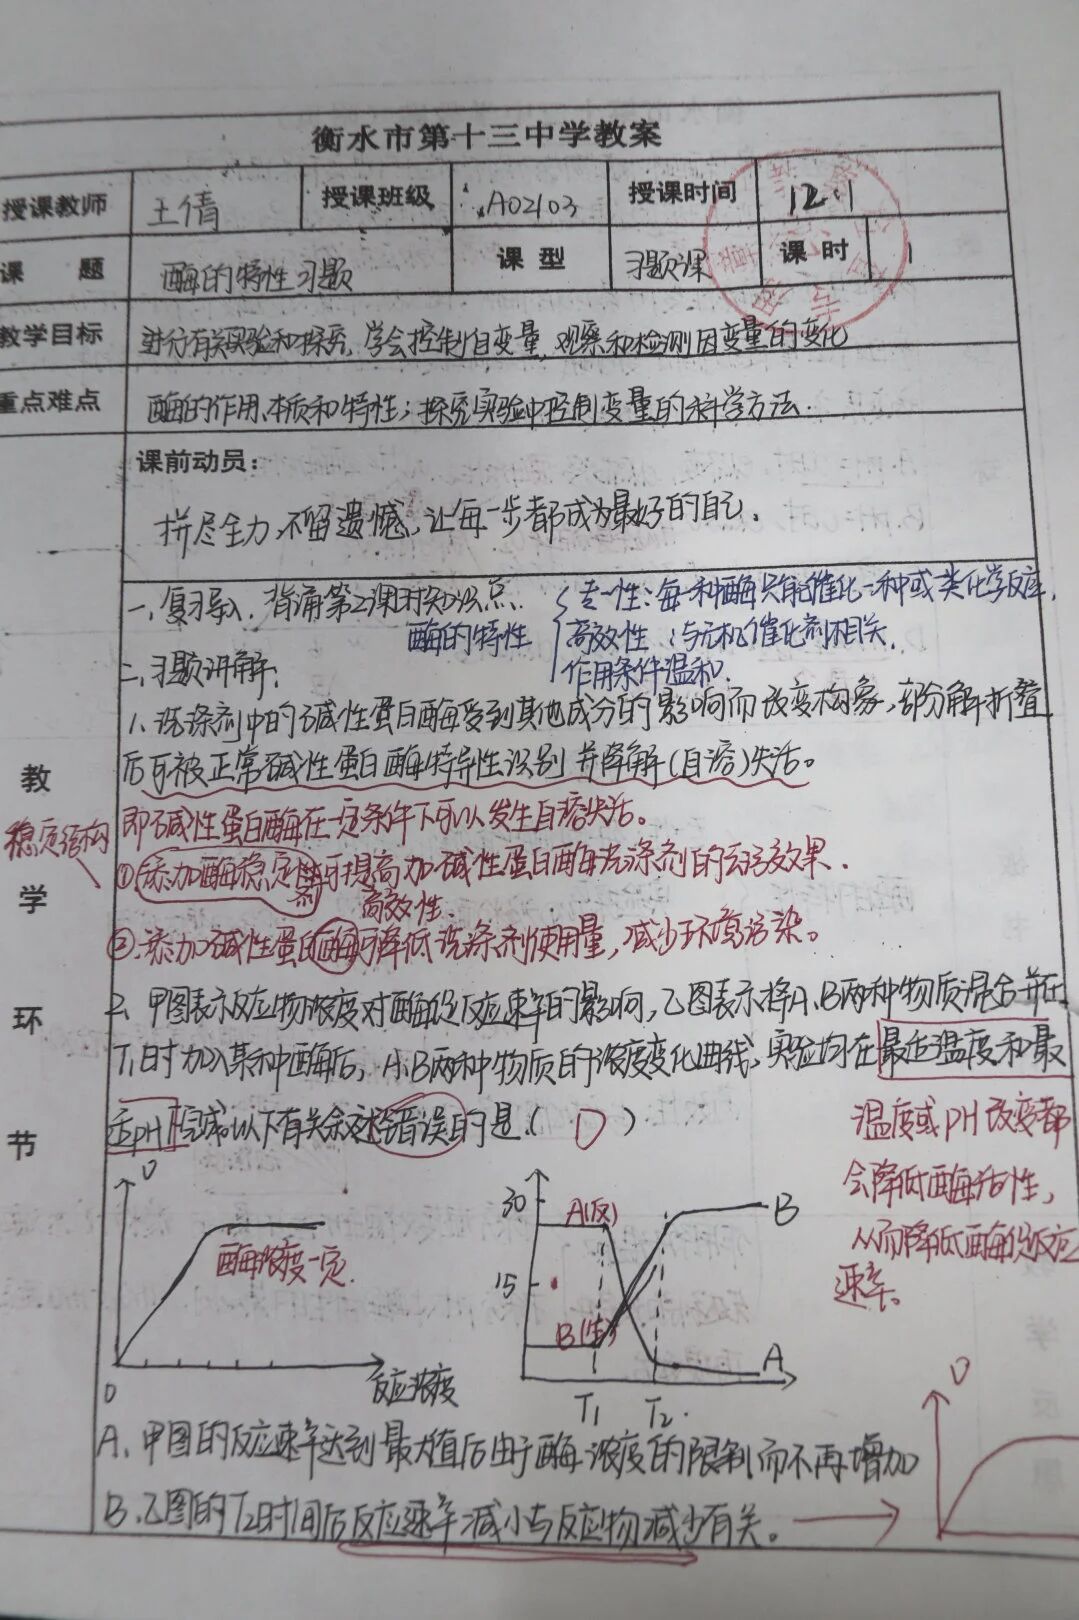 衡水市第十三中学教案
授课教师 王倩 授课班级 A02103 授课时间 12.1
课题 酶的特性习题 课型 习题课 课时 1
教学目标 进行有关实验和探究,学会控制自变量,观察和检测因变量的变化
重点难点 酶的作用、本质和特性;探究实验中控制变量的科学方法.
课前动员:
拼尽全力,不留遗憾,让每一步都成为最好的自己.
教学环节
一、复习导入,背诵第2课时知识点.
酶的特性
专一性:每一种酶只能催化一种或一类化学反应.
高效性:与无机催化剂相关.
作用条件温和.
二、习题讲解:
1、洗涤剂中的碱性蛋白酶受到其他成分的影响而改变构象,部分解折叠
后可被正常碱性蛋白酶特异性识别并降解(自溶)失活。
即碱性蛋白酶在一定条件下可以发生自溶失活。
稳定结构
①添加酶稳定剂可提高加碱性蛋白酶洗涤剂的去污效果.
高效性.
②添加碱性蛋白酶可降低洗涤剂使用量,减少环境污染。
2、甲图表示反应物浓度对酶促反应速率的影响,乙图表示将A、B两种物质混合并在
T₁时加入某种酶后,A、B两种物质的浓度变化曲线,实验均在最适温度和最
适pH下完成,以下有关叙述错误的是.( D )
温度或pH改变都
会降低酶活性,
从而降低酶促反应
速率。
υ
酶浓度一定.
0
反应浓度
30
15
A(反)
B(生)
B
A
T₁ T₂.
υ
A、甲图的反应速率达到最大值后由于酶浓度的限制而不再增加
B、乙图的T₂时间后反应速率减小与反应物减少有关。